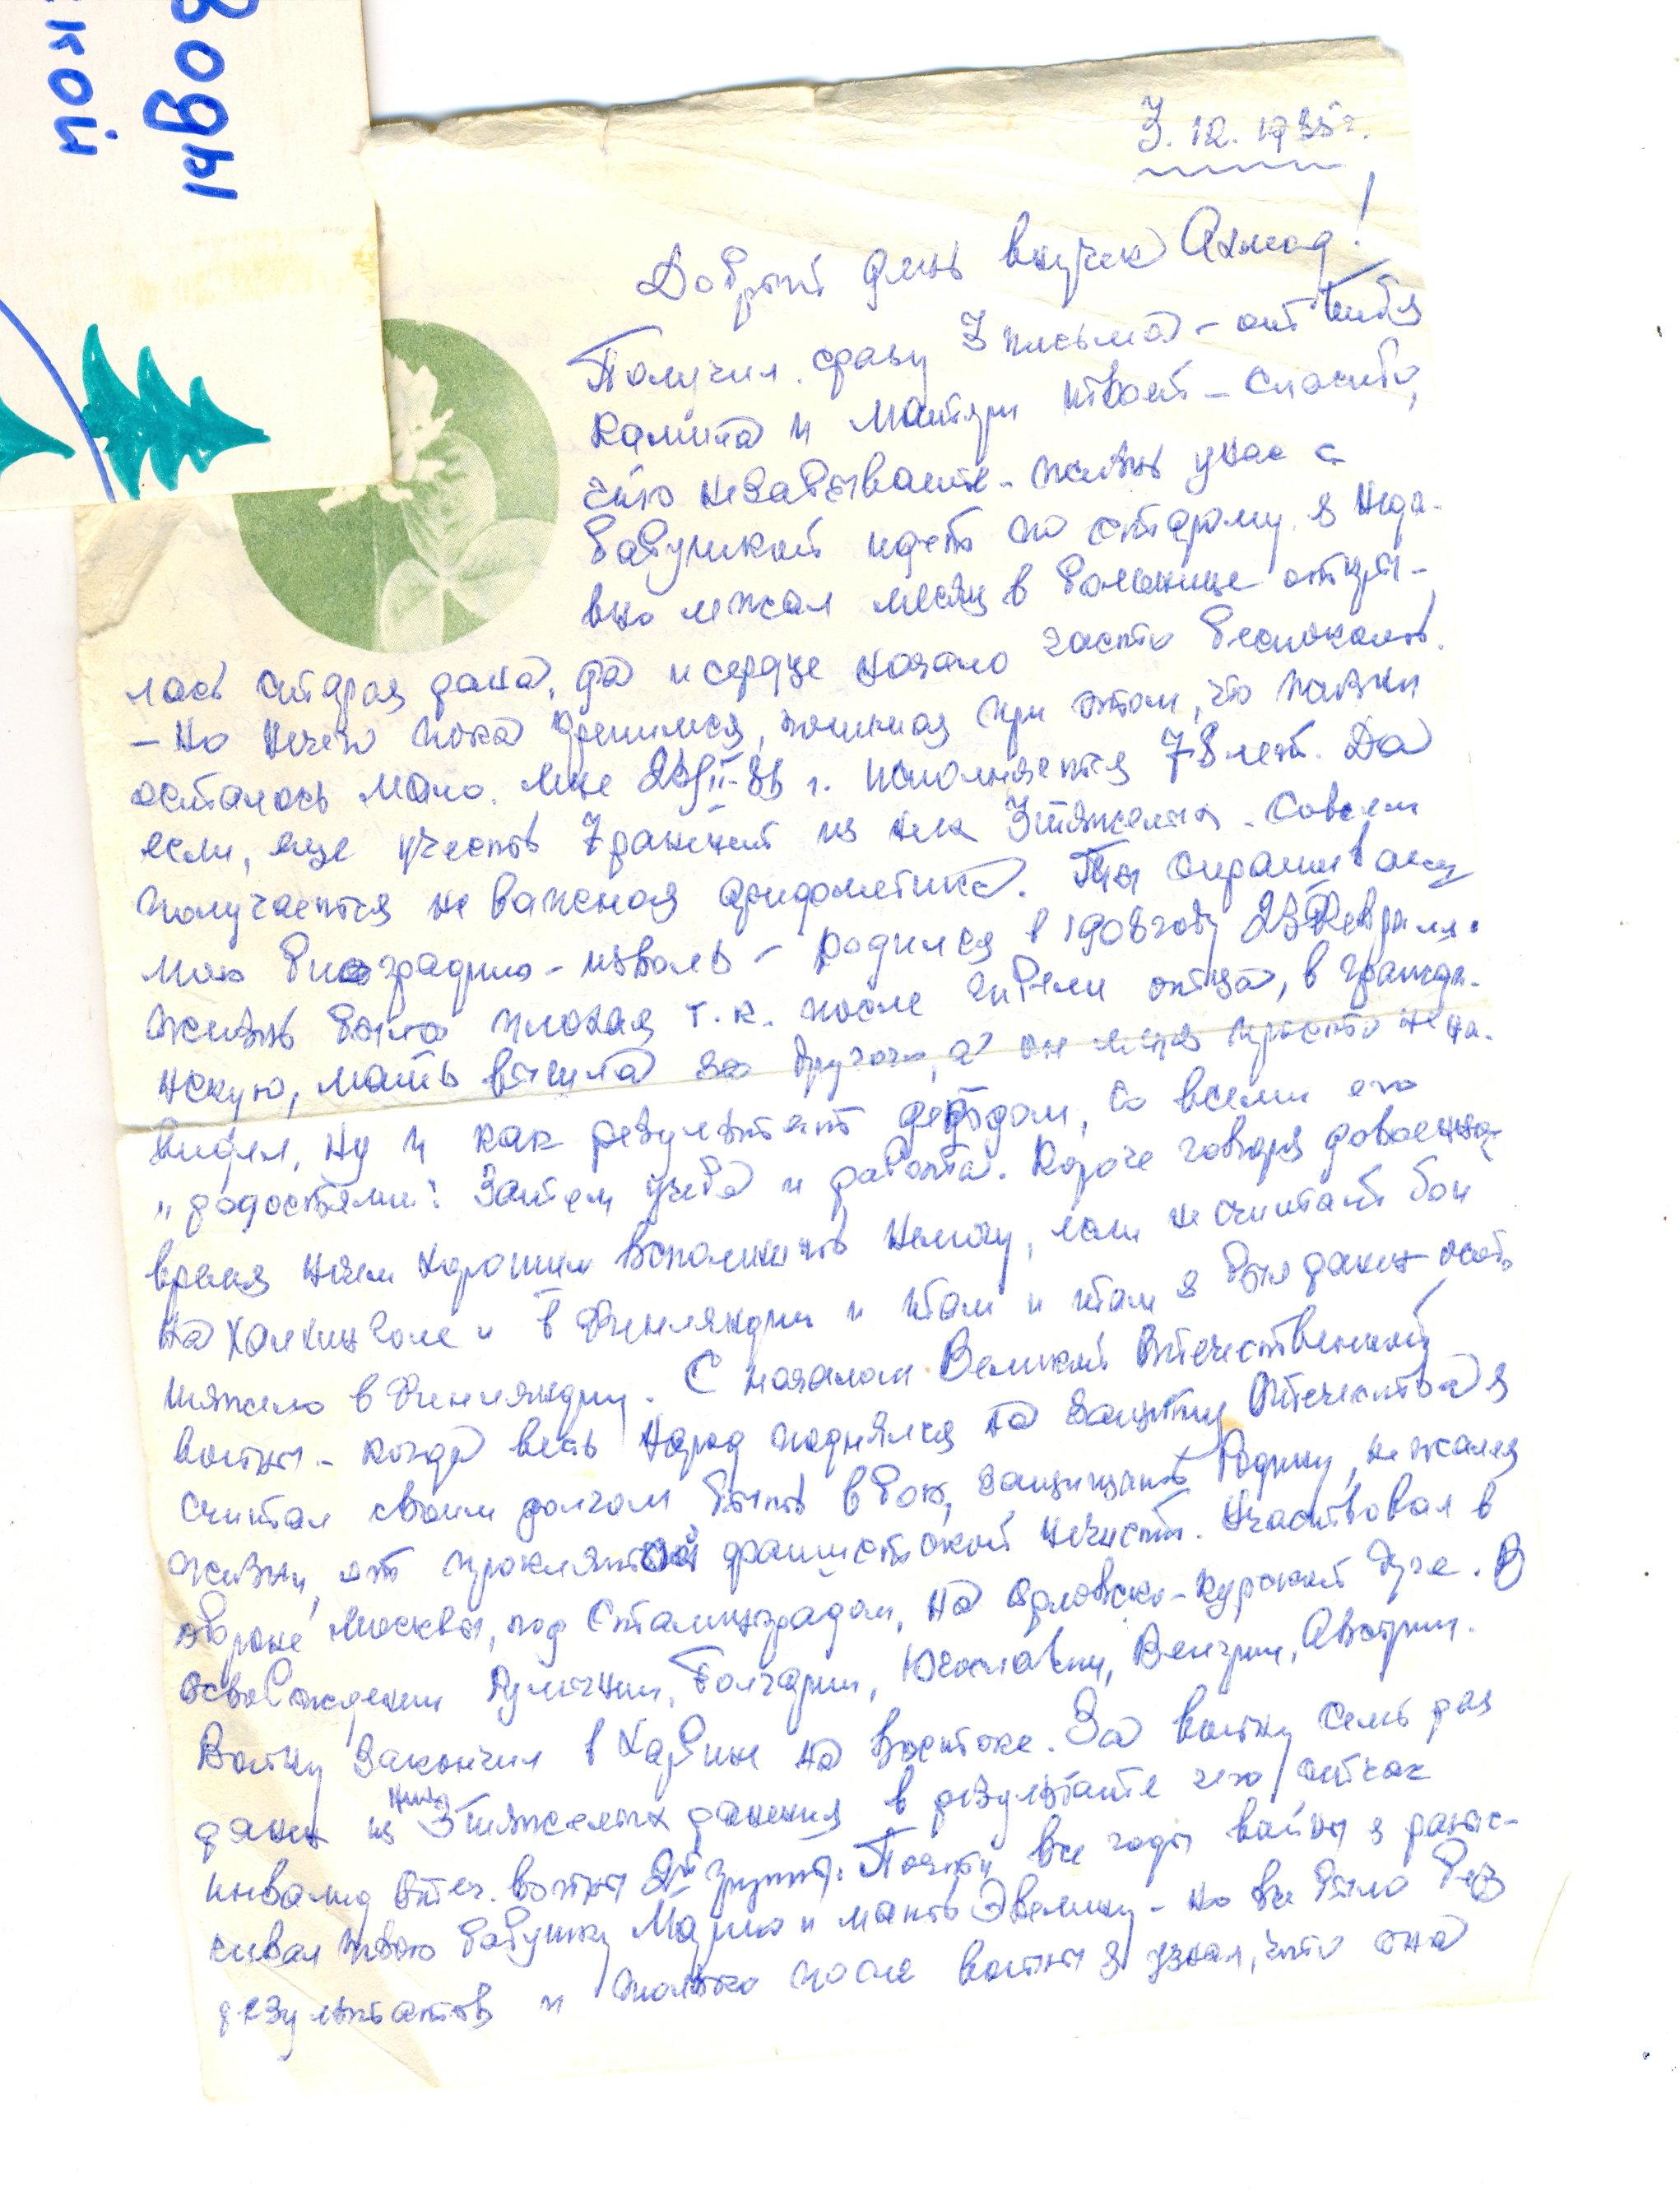 кой
годы
3. 12. 1985г.
Добрый день внучек Ахмад!
Получил сразу 3 письма – от тебя
Камила и матери твоей – спасибо,
что незабываете – жизнь у нас с
бабушкой идет по старому. я неда-
вно лежал месяц в больнице откры-
лась старая рана, да и сердце начало часто беспокоить.
– Но нечего пока держимся, помятуя при этом, что жизни
осталось мало. Мне 23/II-86 г. исполняется 78 лет. Да
если, еще учесть 7 ранений из них 3 тяжелых. Совсем
получается не важная арифметика. Ты спрашиваеш
мою биографию – изволь – родился в 1908 году 23 февраля.
жизнь была плохая т.к. после гибели отца, в гражда-
нскую, мать вышла за другого, а он меня просто нена-
видел, ну и как результат детдом, со всеми его
„радостями". Затем учеба и работа. Короче говоря довоенное
время нечем хорошим вспоминить немогу, если не считать бои
на Халхин Голе и в Финляндии и там и там я был ранен особ.
тяжело в Финляндии. С началом Великой Отечественной
войны – когда весь народ поднялся на защиту Отечества я
считал своим долгом быть в бою, защищать Родину, не жалея
жизни, от проклятой фашистской нечисти. Участвовал в
обороне Москвы, под Сталинградом, на Орловско-Курской дуге. В
освобождении Румынии, Болгарии, Югославии, Венгрии, Австрии.
Войну закончил в Харбине на востоке. За войну семь раз
ранен из них 3 тяжелых ранения в результате чего сейчас
инвалид Отеч. войны 2й группы. Почти все годы войны я разыс-
кивал твою бабушку Марию и мать Эвелину – но все было без
результатов и только после войны я узнал, что она